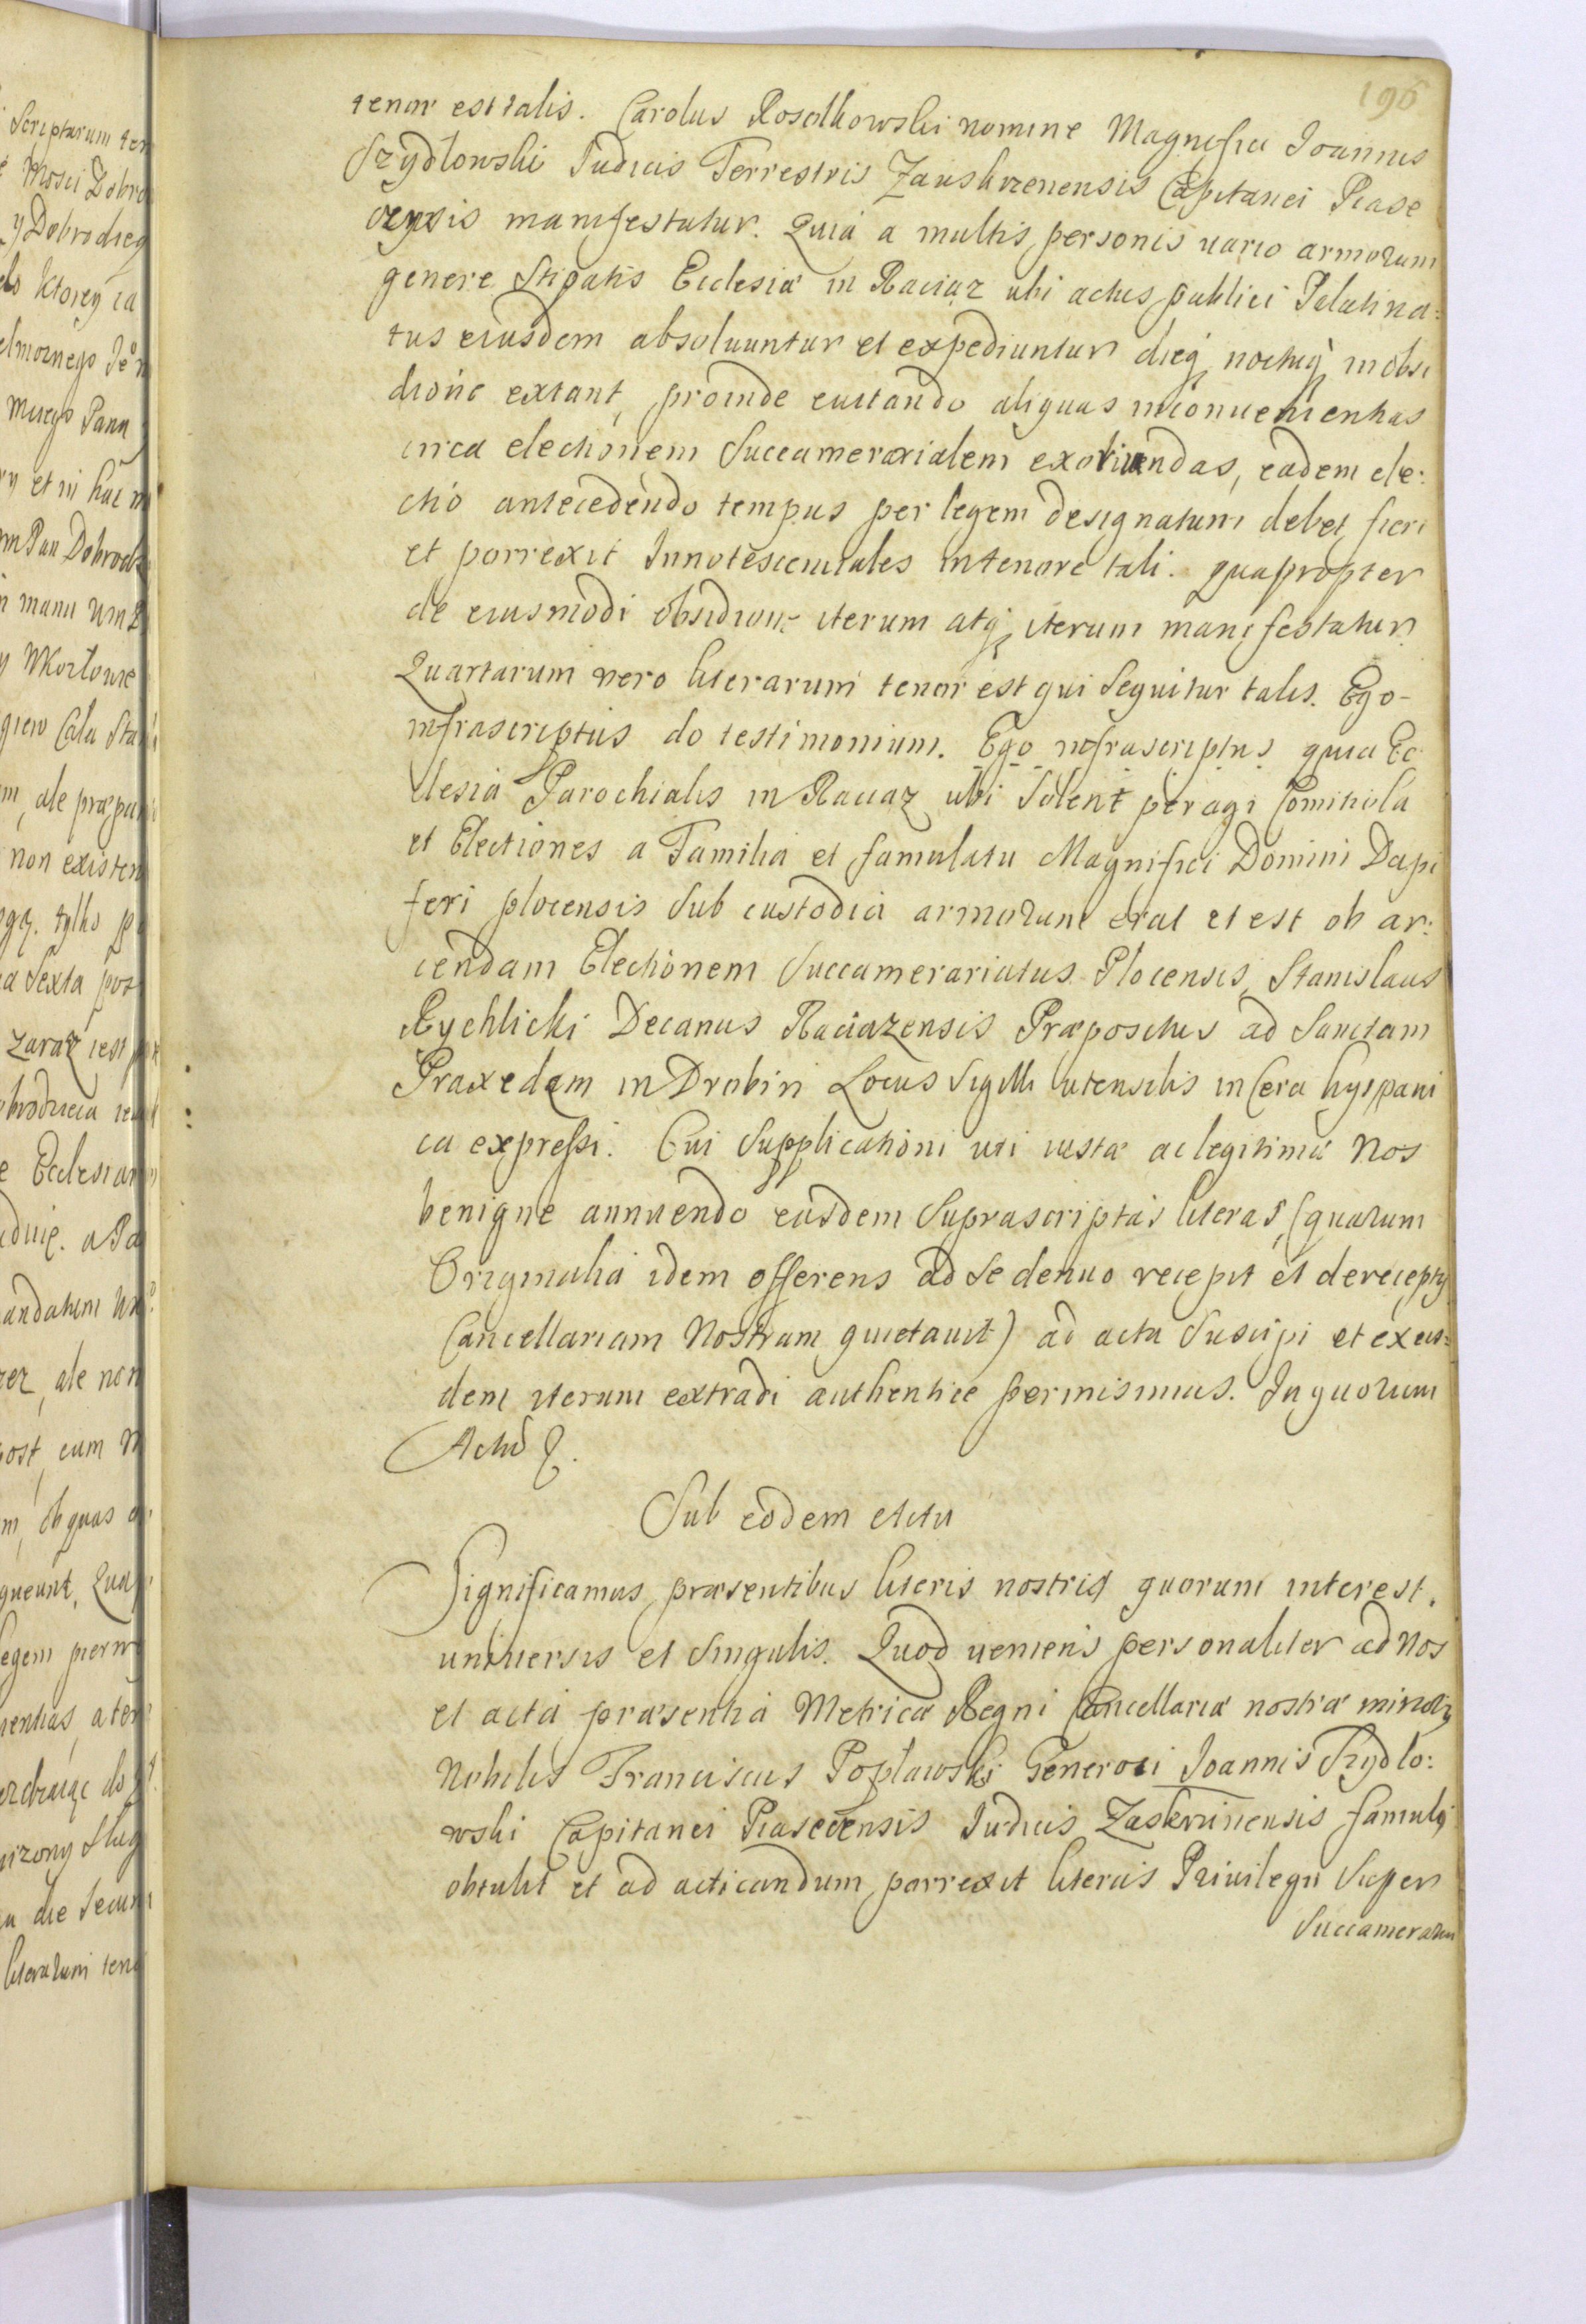 196
tenor est talis. Carolus Rosolkowski nomine Magnifici Joannis
Szydlowski Judicis Terrestris Zauskrzenensis Capitanei Piase
czensis manifestatur. Quia a multis personis uario armorum
genere Stipatis Ecclesiæ in Raciaz ubi actus publici Palatina:
tus eiusdem absoluuntur et expediuntur dieq noctuq in obsi
dione extant, proinde euitando aliquas inconuenientias
circa electionem Succamerarialem exoriundas, eadem ele:
ctio antecedendo tempus per legem designatum debet fieri
et porrexit Innotescentiales in tenore tali. quapropter
de eiusmodi obsidione iterum atq iterum manifestatur
Quartarum vero literarum tenor est qui Sequitur talis. Ego-
infrascriptus do testimonium. Ego infrascriptus quia Ec
clesia Parochialis in Raciaz ubi Solent peragi Comitiola
et Electiones a Familia et famulatu Magnifici Domini Dapi
feri plocensis Sub custodia armorum erat et est ob ar:
cendam Electionem Succamerariatus Plocensis, Stanislaus
Rychlicki Decanus Raciazensis Præpositus ad Sanctam
Praxedem in Drobin Locus Sigilli utensilis in Cera hyspani
ca expressi. Cui Supplicationi uti iustæ ac legitimæ Nos
benigne annuendo easdem Suprascriptas literas, (quarum
Originalia idem offerens ad Se denuo recepit et de receptis
Cancellariam Nostram quietauit) ad acta Suscipi et ex eis=
dem iterum extradi authentice permisimus. In quorum
Actu &.
Sub eodem Actu
Significamus præsentibus literis nostris quorum interest,
uniuersis et Singulis. Quod ueniens personaliter ad Nos
et acta præsentia Metricæ Regni Cancellariæ nostræ minoris
Nobilis Franciscus Popławski Generosi Joannis Szydlo:
wski Capitanei Piasecensis Judicis Zaskrzinensis famulus
obtulit et ad acticandum porrexit literas Priuilegii Super
Succamerarum